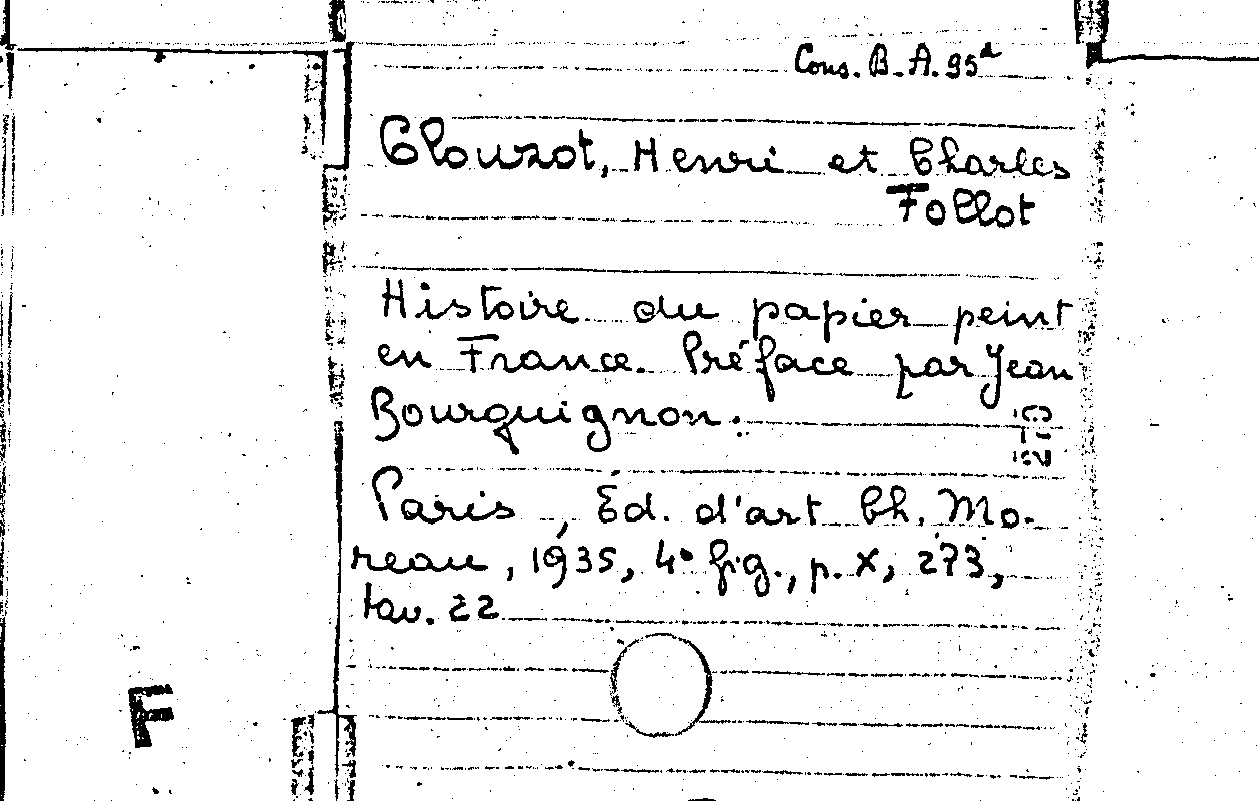 Cons. B. A. 95ᵈ
Clouzot, Henri et Charles
Follot
Histoire du papier peint
en France. Préface par Jean
Bourguignon.
Paris, Éd. d'art Ch. Mo-
reau, 1935, 4° fig., p. X, 273,
tav. 22
F